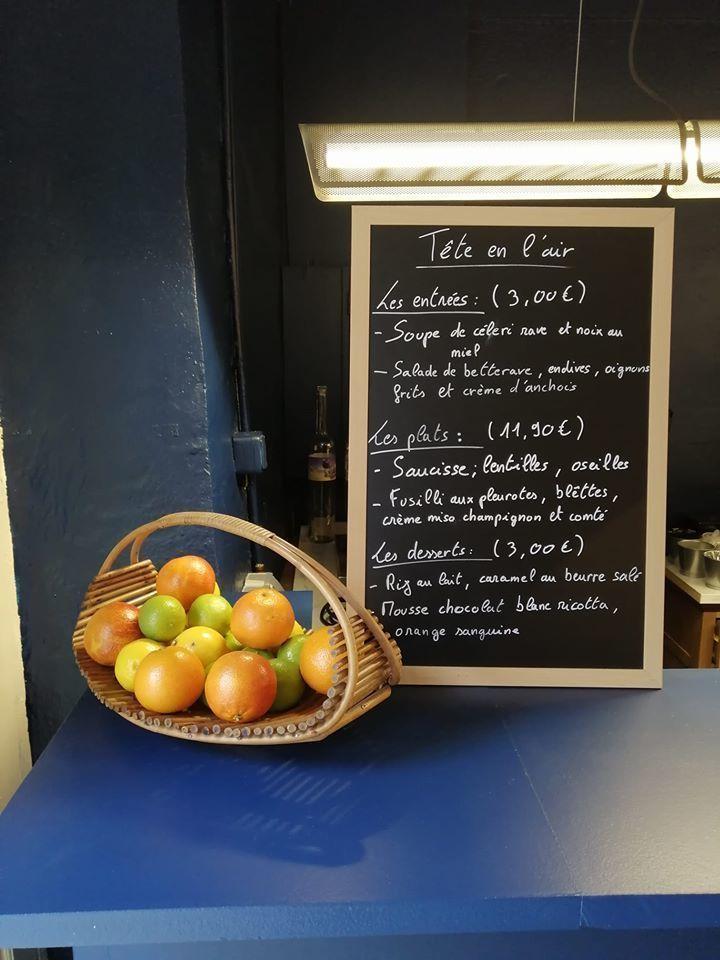 Tête en l'air
Les entrées : (3,00€)
- Soupe de céleri rave et noix au
miel
- Salade de betterave, endives, oignons
frits et crème d'anchois
Les plats : (11,90€)
- Saucisse, lentilles, oseilles
- Fusilli aux pleurotes, blêttes,
crème miso champignon et comté
Les desserts : (3,00€)
- Riz au lait, caramel au beurre salé
Mousse chocolat blanc ricotta,
orange sanguine